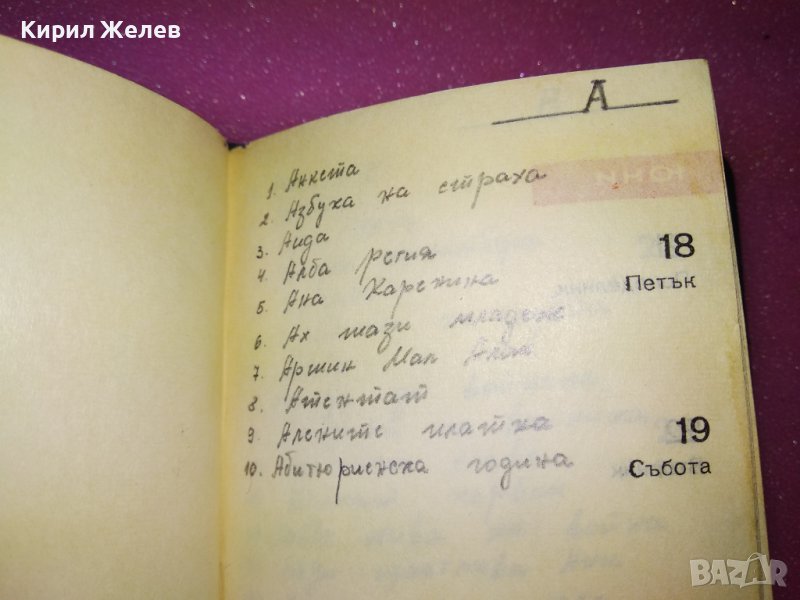 Кирил Желев
А
ЮНИ
1. Анкета
2. Азбука на страха
3. Аида
4. Алба регия
18
5. Ана Каренина
Петък
6. Ах тази младеж
7. Аршин Мал Алан
8. Атентат
9. Алените платна
19
10. Абитюриенска година
Събота
BAZAR